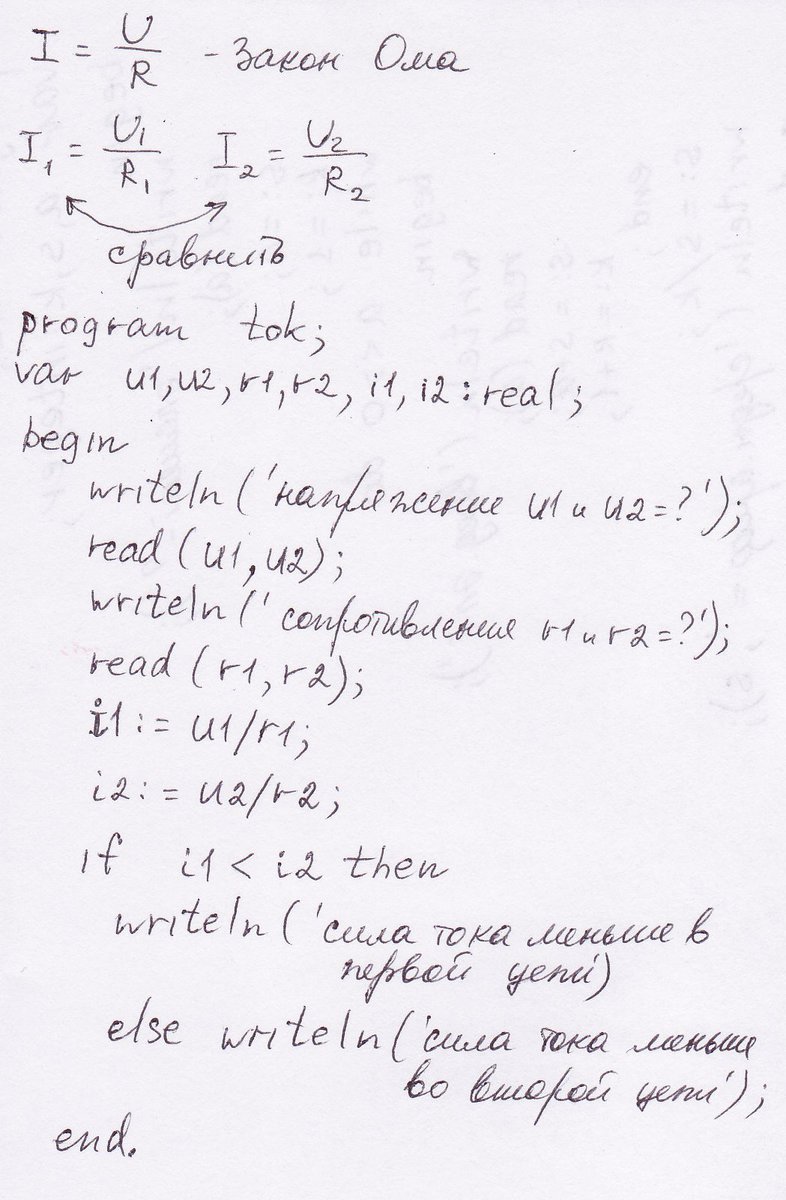 I = U/R - Закон Ома
I1 = U1/R1 I2 = U2/R2
сравнить
program tok;
var u1,u2,r1,r2,i1,i2:real;
begin
writeln('напряжение u1 и u2=?');
read(u1,u2);
writeln('сопротивления r1 и r2=?');
read(r1,r2);
i1:=u1/r1;
i2:=u2/r2;
if i1<i2 then
writeln('сила тока меньше в
первой цепи')
else writeln('сила тока меньше
во второй цепи');
end.